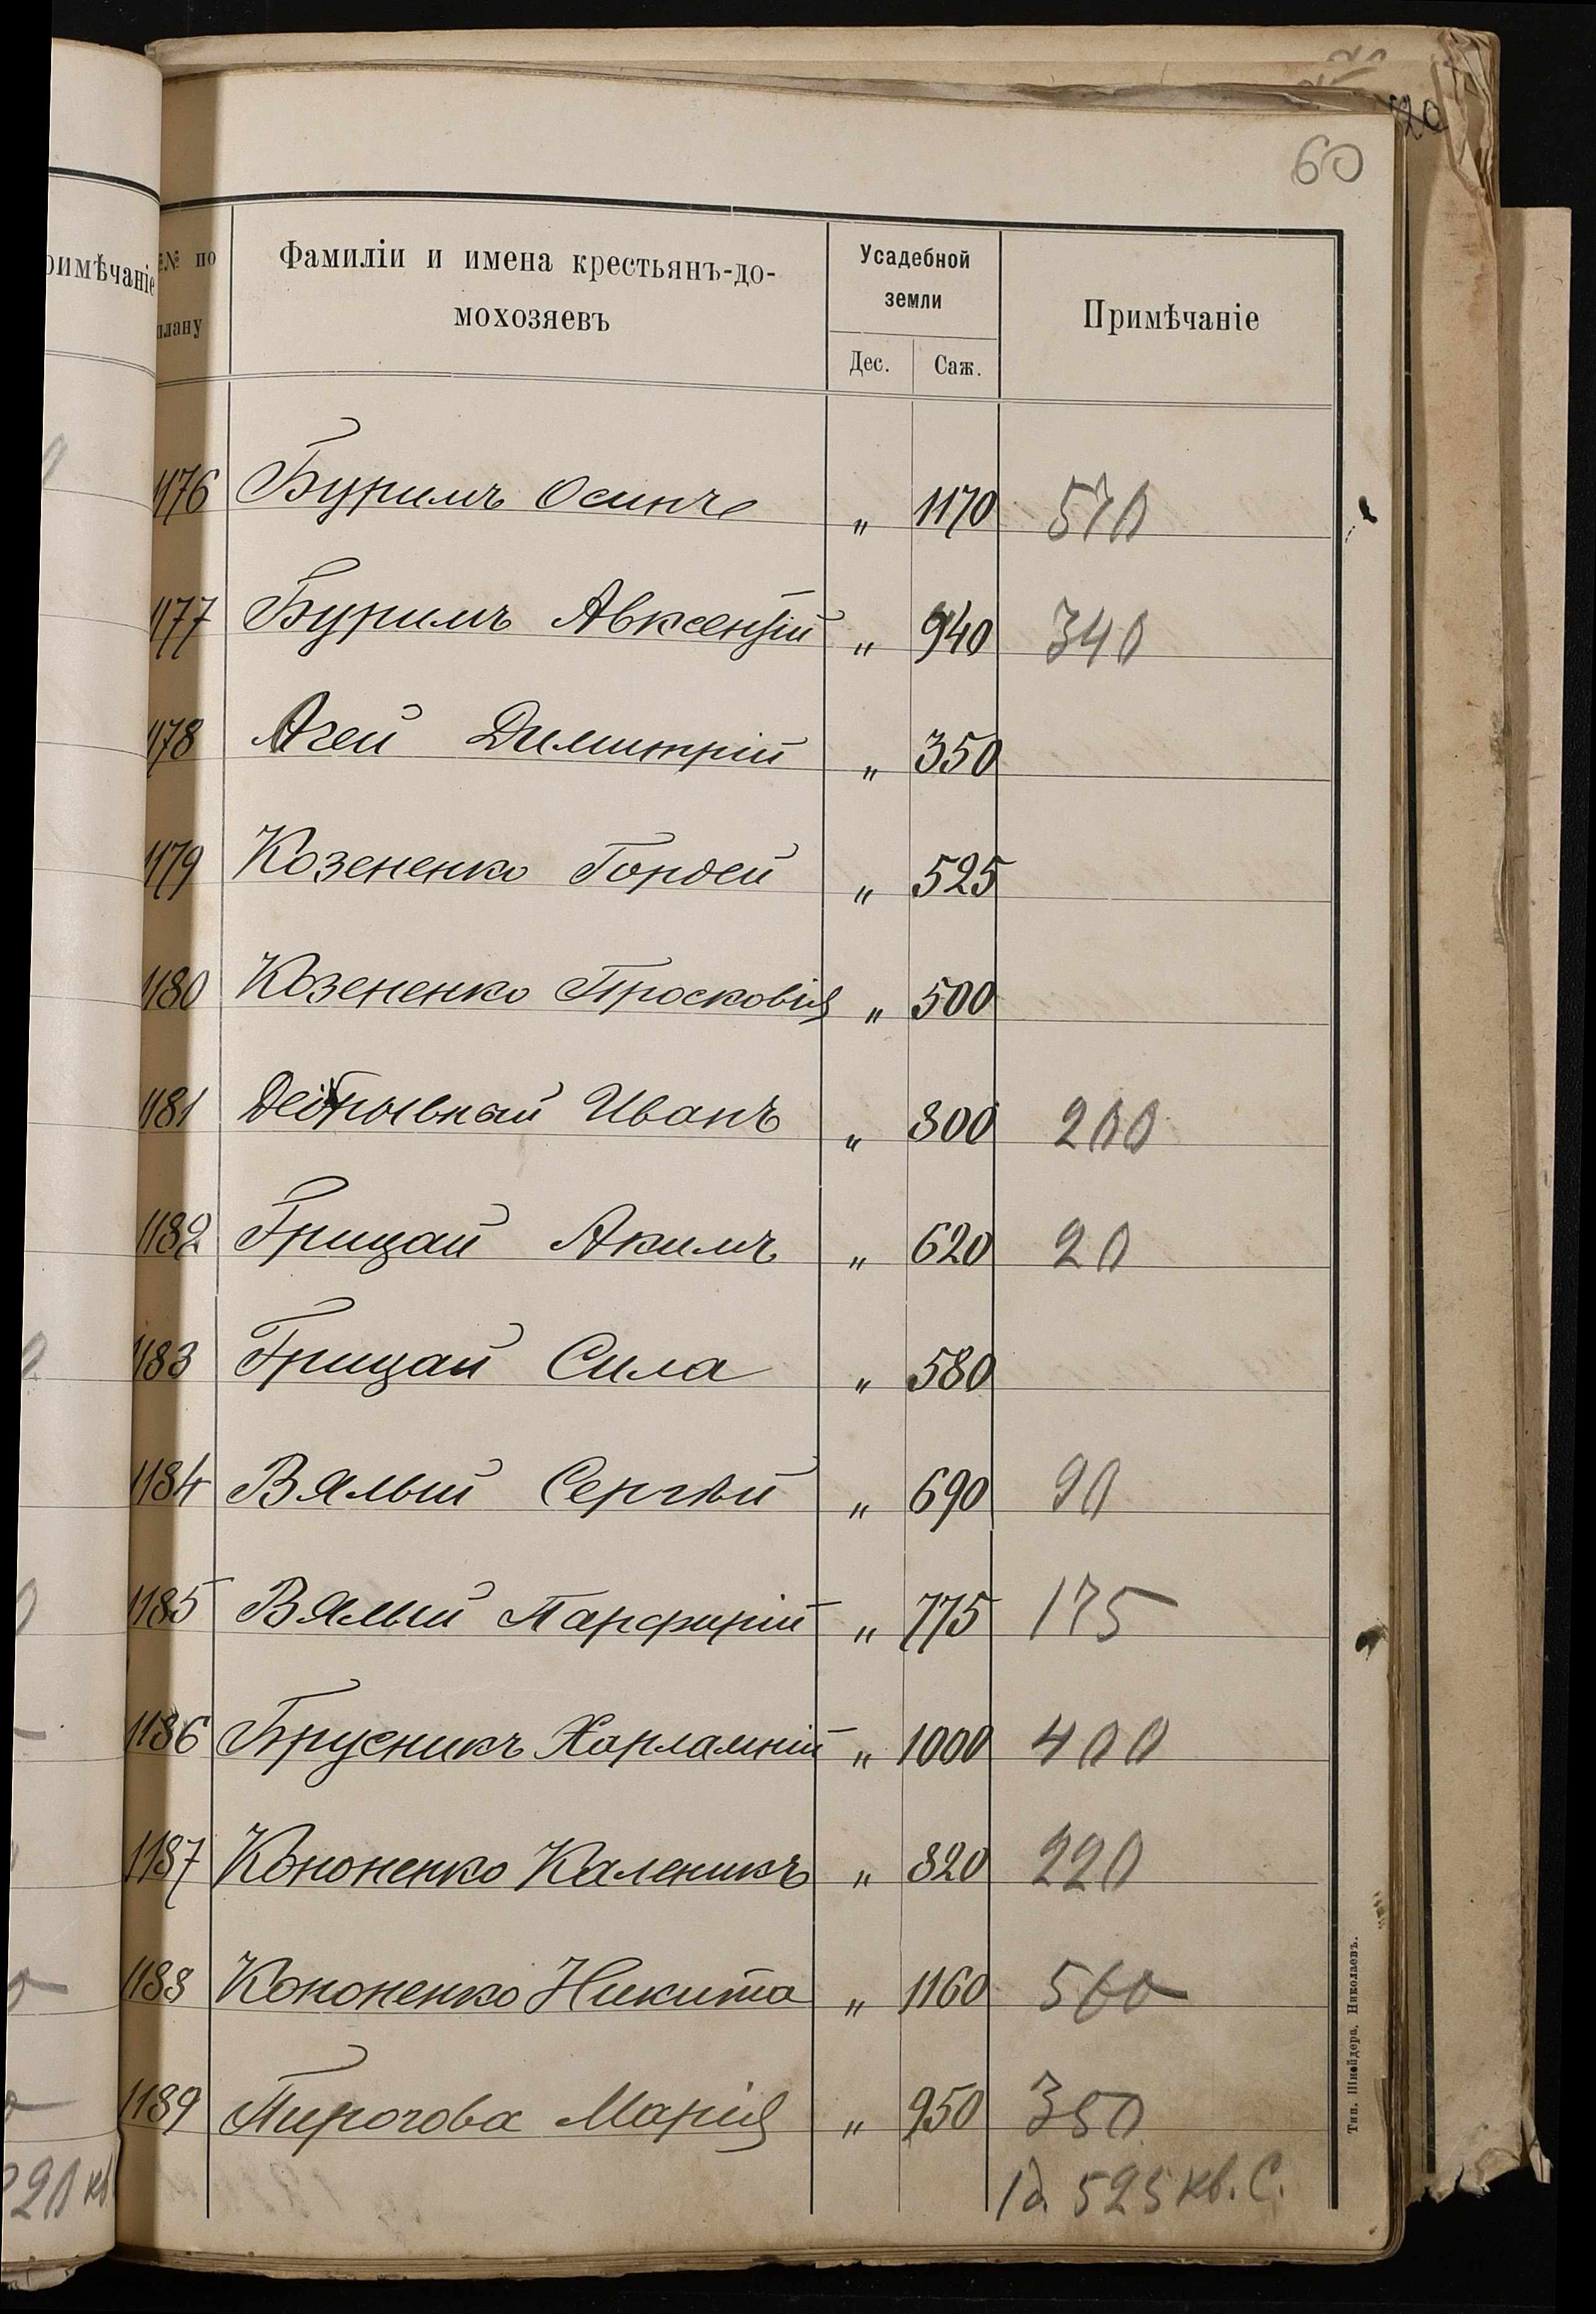 60
№№ по плану
Фамиліи и имена крестьянъ-до-
мохозяевъ
Усадебной
земли
Дес. Саж.
Примѣчаніе
1176 Буримъ Осипъ „ 1170 570
1177 Буримъ Авксентій „ 940 340
1178 Агей Димитрій „ 350
1179 Козененко Гордей „ 525
1180 Козененко Просковія „ 500
1181 Иванъ „ 800 200
1182 Грицай Акимъ „ 620 20
1183 Грицай Сила „ 580
1184 Вялый Сергѣй „ 690 90
1185 Вялый Парфирій „ 775 175
1186 Брусникъ Харлампій „ 1000 400
1187 Кононенко Каленикъ „ 820 220
1188 Кононенко Никита „ 1160 560
1189 Пирогова Марія „ 950 350
1 д. 525 кв. С.
Тип. Шнейдера, Николаевъ.